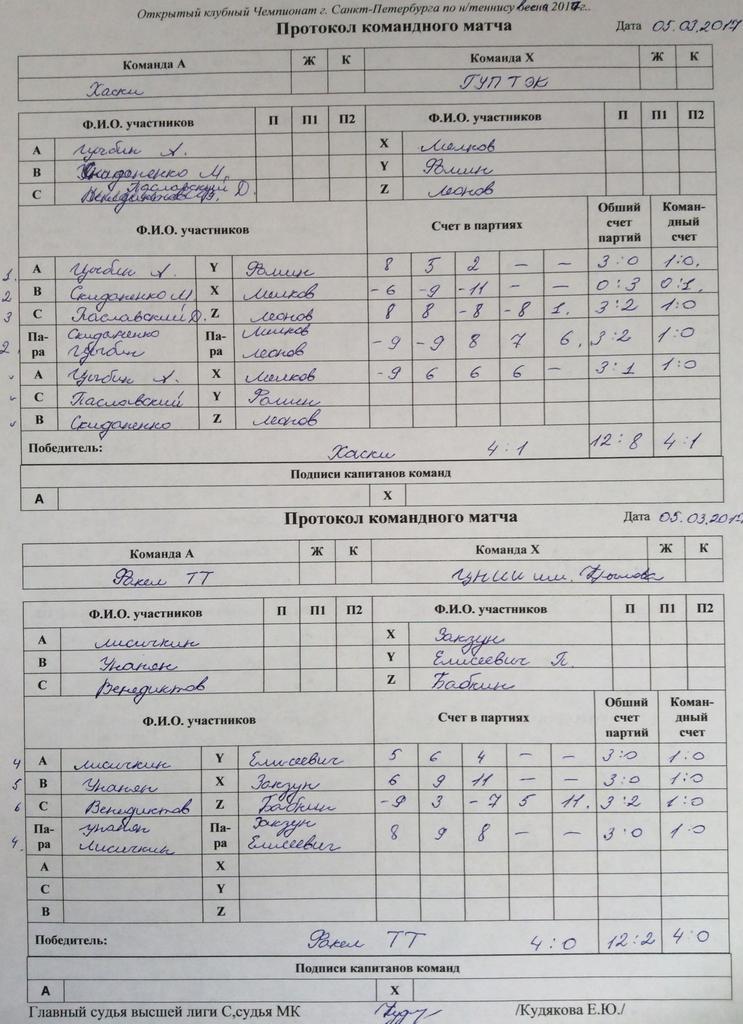 Открытый клубный Чемпионат г. Санкт-Петербурга по н/теннису весна 2017г..
Протокол командного матча Дата 05.03.2017
Команда А Ж К Команда Х Ж К
Хаски ГУП ТЭК
Ф.И.О. участников П П1 П2 Ф.И.О. участников П П1 П2
А Цыбин А. X Мелков
В Скиданенко М. Y Фомин
С Пасловский Д. Z Леонов
Ф.И.О. участников Счет в партиях Общий счет партий Коман-дный счет
1. А Цыбин А. Y Фомин 8 5 2 – – 3:0 1:0.
2 В Скиданенко М X Мелков -6 -9 -11 – – 0:3 0:1.
3 С Пасловский Д. Z Леонов 8 8 -8 -8 1. 3:2 1:0
2. Па-ра Скиданенко Цыбин Па-ра Мелков Леонов -9 -9 8 7 6. 3:2 1:0
А Цыбин А. X Мелков -9 6 6 6 – 3:1 1:0
С Пасловский Y Фомин
В Скиданенко Z Леонов
Победитель: Хаски 4:1 12:8 4:1
Подписи капитанов команд
А X
Протокол командного матча Дата 05.03.2017
Команда А Ж К Команда Х Ж К
Факел ТТ ЦНИИ им. Крылова
Ф.И.О. участников П П1 П2 Ф.И.О. участников П П1 П2
А Лисичкин X Закзун
В Унанян Y Елисеевич П
С Венедиктов Z Бабкин
Ф.И.О. участников Счет в партиях Общий счет партий Коман-дный счет
4 А Лисичкин Y Елисеевич 5 6 4 – – 3:0 1:0
5 В Унанян X Закзун 6 9 11 – – 3:0 1:0
6 С Венедиктов Z Бабкин -9 3 -7 5 11. 3:2 1:0
4. Па-ра Унанян Лисичкин Па-ра Закзун Елисеевич 8 9 8 – – 3:0 1:0
А X
С Y
В Z
Победитель: Факел ТТ 4:0 12:2 4:0
Подписи капитанов команд
А X
Главный судья высшей лиги С,судья МК /Кудякова Е.Ю./